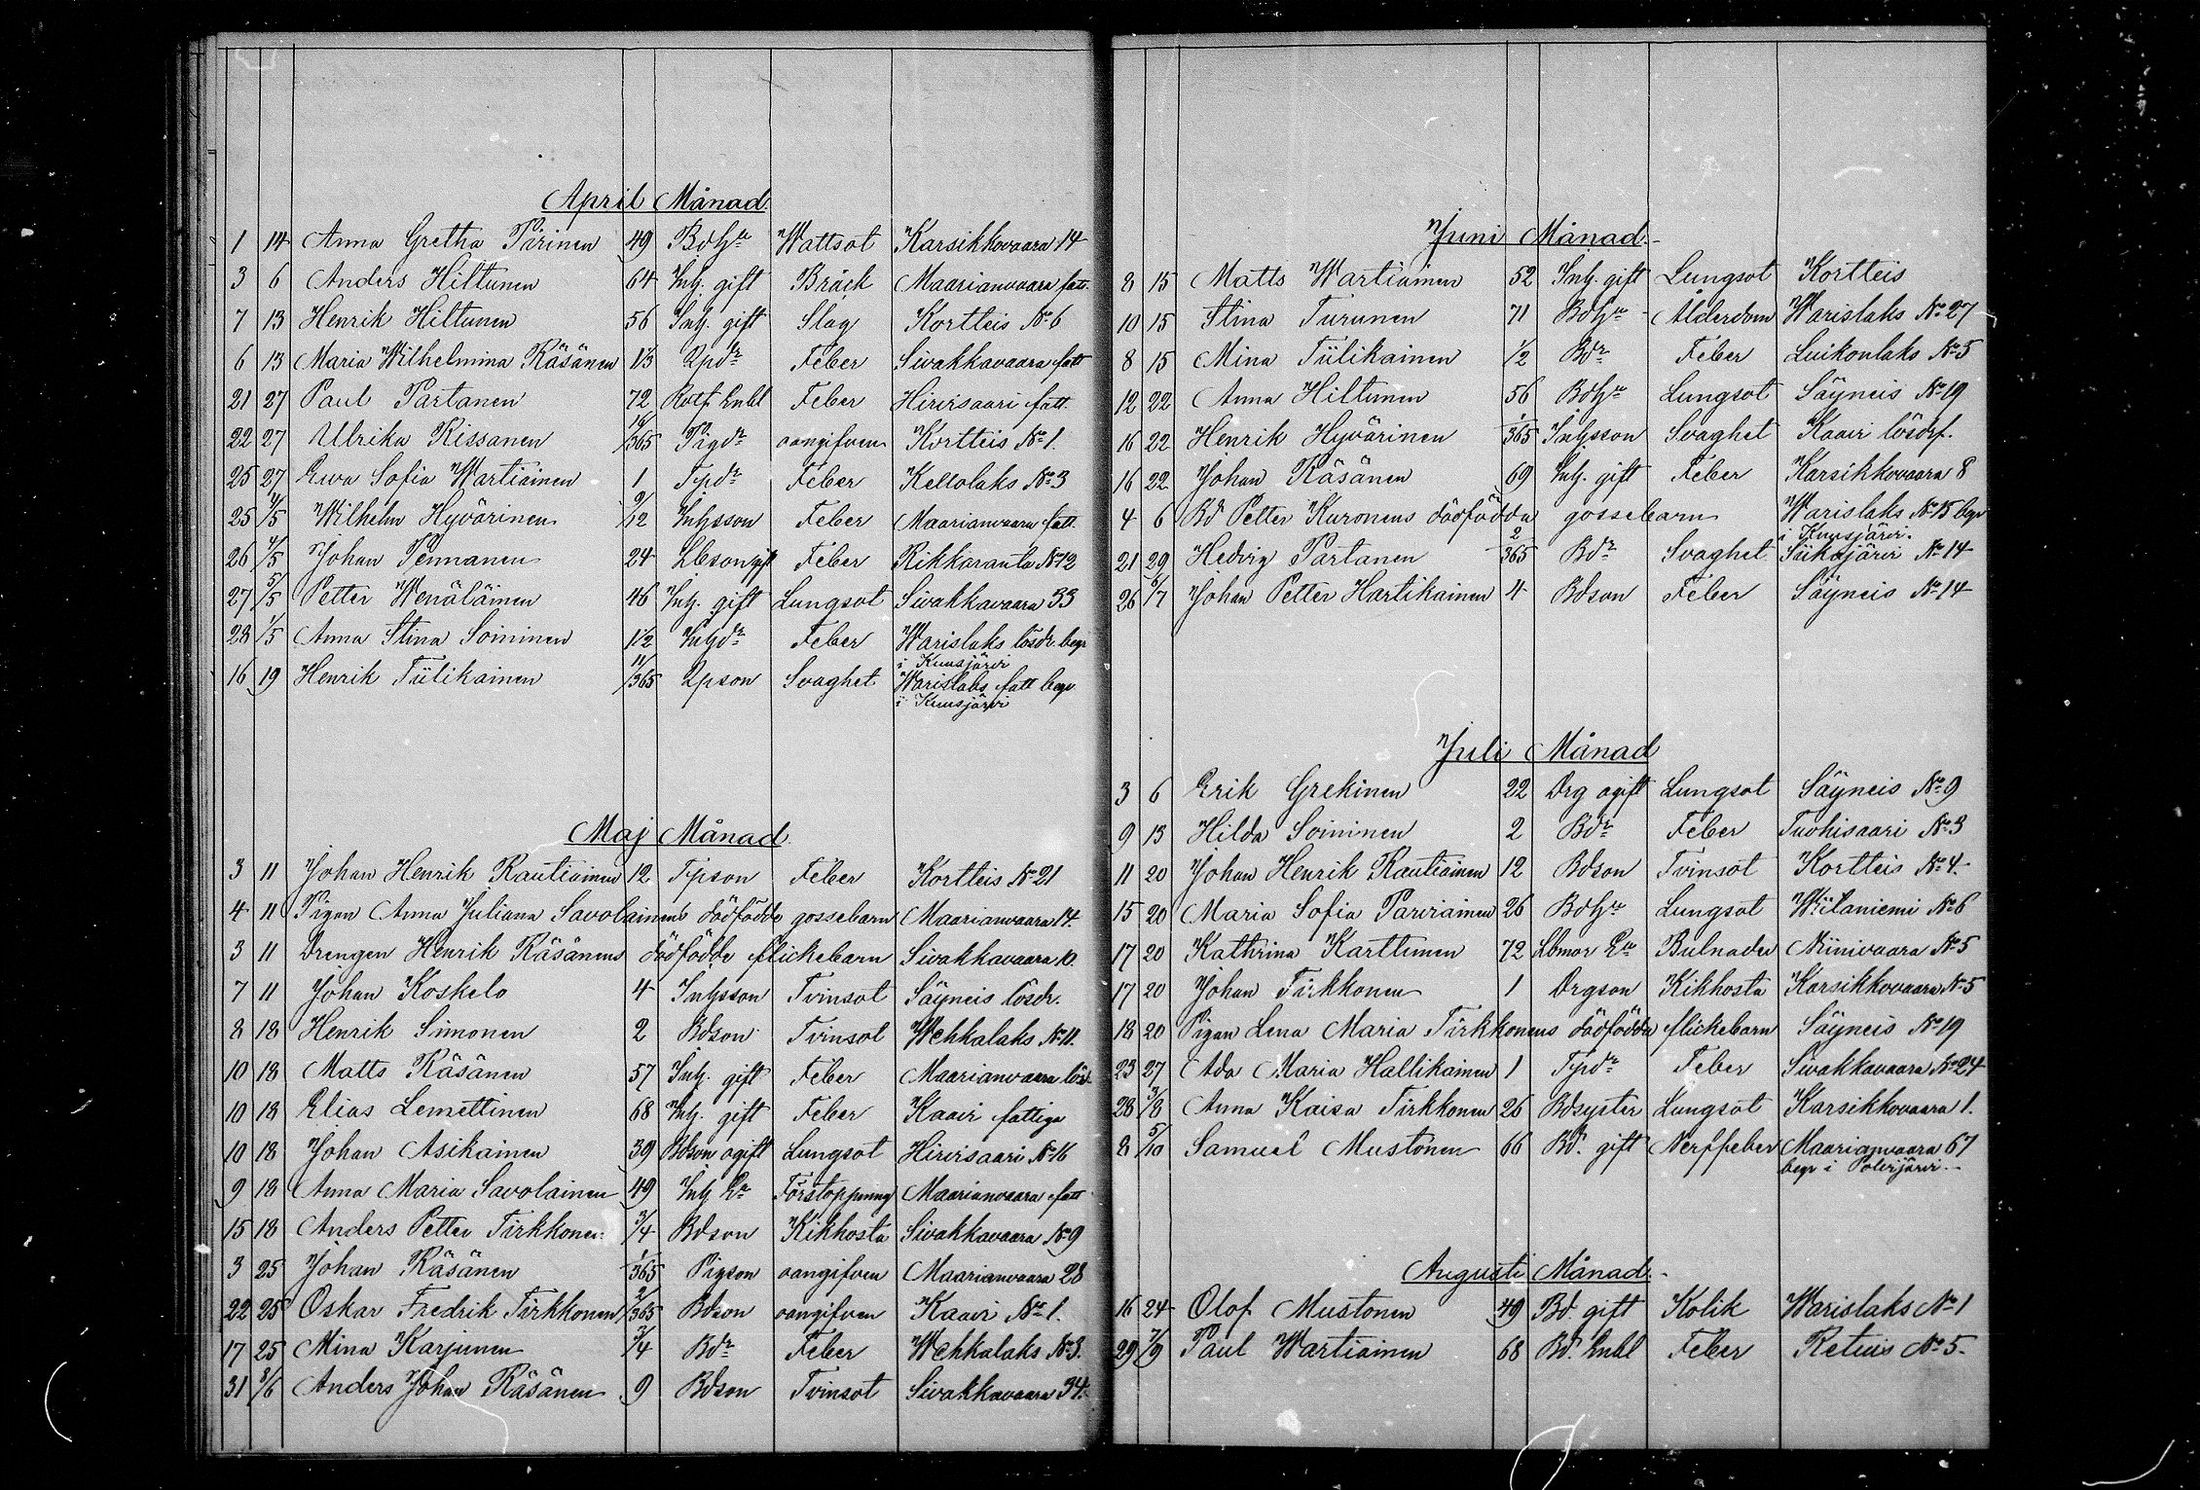 April Månad.
1 14 Anna Gretha Piirinen 49 Bdhu Wattsot Karsikkovaara 14
3 6 Anders Hiltunen 64 Inh. gift Bråck Maarianvaara fatt.
7 13 Henrik Hiltunen 56 Inh. gift Slag Kortteis No 6
6 13 Maria Wilhelmina Räsänen 1/3 Lpdr Feber Sivakkavaara fatt
21 27 Paul Partanen 72 Rotf. Enkl Feber Hirvisaari fatt.
22 27 Ulrika Kissanen /365 Pigdr oangifven Kortteis No 1.
25 27 Ewa Sofia Wartiainen 1 Typdr Feber Keltolaks No 3
25 1/5 Wilhelm Hyvärinen 9/12 Inhsson Feber Maarianvaara fatt.
26 4/5 Johan Pennanen 24 Lbson gift Feber Rikkaranta No 12
27 5/5 Petter Wenäläinen 46 Inh. gift Lungsot Sivakkavaara 33
28 1/5 Anna Stina Soininen 1/2 Inhdr Feber Warislaks lösdr. begr
i Kuusjärvi
16 19 Henrik Tiilikainen 11/365 Lpson Svaghet Warislaks fatt begr
i Kuusjärvi
Maj Månad.
3 11 Johan Henrik Rautiainen 12 Typson Feber Kortteis No 21
4 11 Pigan Anna Juliana Savolainens dödfödde gossebarn Maarianvaara 14.
3 11 Drengen Henrik Räsänens dödfödde flickebarn Sivakkavaara 10.
7 11 Johan Koskelo 4 Inhsson Tvinsot Säyneis lösdr.
8 18 Henrik Simonen 2 Bdson Tvinsot Wehkalaks No 11.
10 18 Matts Räsänen 57 Inh. gift Feber Maarianvaara lösd
10 18 Elias Lemettinen 68 Inh. gift Feber Kaavi fattiga
10 18 Johan Asikainen 39 Bdson ogift Lungsot Hirvisaari No 16
9 18 Anna Maria Savolainen 49 Inh Ea Förstoppning Maarianvaara fatt
15 18 Anders Petter Tirkkonen 3/4 Bdson Kikhosta Sivakkavaara No 9
3 25 Johan Räsänen 1/365 Pigson oangifven Maarianvaara 28
22 25 Oskar Fredrik Tirkkonen 2/365 Bdson oangifven Kaavi No 1.
17 25 Mina Karjunen 3/4 Bdr Feber Wehkalaks No 3.
31 8/6 Anders Johan Räsänen 9 Bdson Tvinsot Sivakkavaara 34.
Juni Månad.
8 15 Matts Wartiainen 52 Inh. gift Lungsot Kortteis
10 15 Stina Turunen 71 Bdhu Ålderdom Warislaks No 27
8 15 Mina Tiilikainen 1/2 Bdr Feber Luikonlaks No 5
12 22 Anna Hiltunen 56 Bdhu Lungsot Säyneis No 19
16 22 Henrik Hyvärinen 1/365 Inhsson Svaghet Kaavi lösdrf.
16 22 Johan Räsänen 69 Inh. gift Feber Karsikkovaara 8
4 6 Bd Petter Kuronens dödfödda gossebarn Warislaks No 15 begr
i Kuusjärvi.
21 29 Hedvig Partanen 2/365 Bdr Svaghet Siikajärvi No 14
26 6/7 Johan Petter Hartikainen 4 Bdson Feber Säyneis No 14
Juli Månad
3 6 Erik Grekinen 22 Drg ogift Lungsot Säyneis No 9
9 13 Hilda Soininen 2 Bdr Feber Tuohisaari No 3
11 20 Johan Henrik Rautiainen 12 Bdson Tvinsot Kortteis No 4.
15 20 Maria Sofia Parviainen 26 Bdhu Lungsot Wiitaniemi No 6
17 20 Kathrina Karttunen 72 Lbmor Ea Bulnader Niinivaara No 5
17 20 Johan Tirkkonen 1 Drgson Kikhosta Karsikkovaara No 5
18 20 Pigan Lena Maria Tirkkonens dödfödda flickebarn Säyneis No 19
23 27 Ada Maria Hallikainen 1 Typdr Feber Sivakkavaara No 24
28 3/8 Anna Kaisa Tirkkonen 26 Bdsyster Lungsot Karsikkovaara 1.
8 5/10 Samuel Mustonen 66 Bd. gift Nerffeber Maarianvaara 67
begr i Polvijärvi.
Augusti Månad.
16 24 Olof Mustonen 49 Bd. gift Kolik Warislaks No 1
29 7/9 Paul Wartiainen 68 Bd. Enkl Feber Retuis No 5.